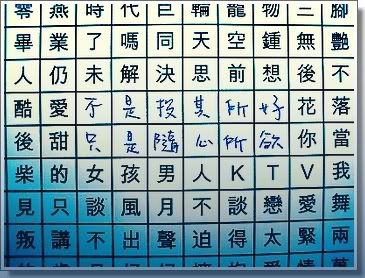 零燕時代巨輪龍物三腳
畢業了嗎同天空鍾無艷
人仍未解決思前想後不
酷愛不是投其所好花落
後甜只是隨心所欲你當
柴的女孩男人KTV我
見只談風月不談戀愛舞
叛講不出聲迫得太緊兩